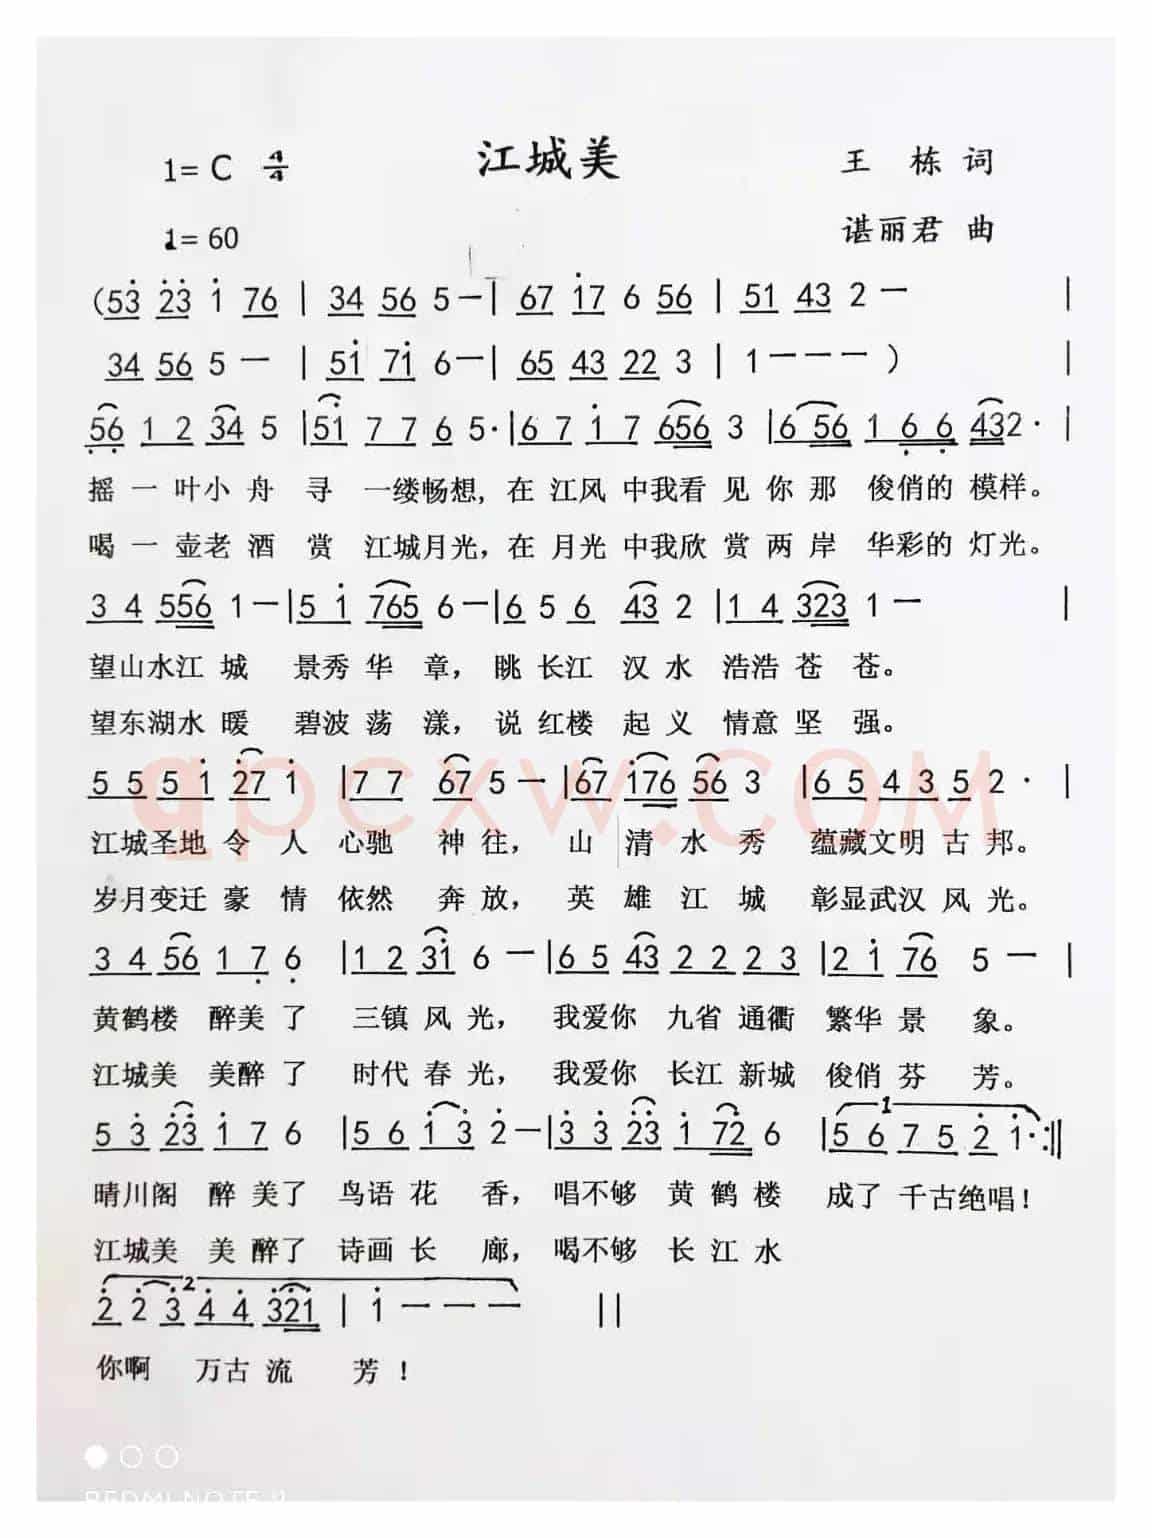 1= C 4/4 江城美 王 栋 词
1= 60 谌丽君 曲
(53 23 1 76 | 34 56 5 一 | 67 17 6 56 | 51 43 2 一 |
34 56 5 一 | 51 71 6 一 | 65 43 22 3 | 1 一 一 一 ) |
56 1 2 34 5 | 51 7 7 6 5· | 6 7 1 7 656 3 | 6 56 1 6 6 432· |
摇 一 叶小 舟 寻 一缕畅想, 在 江风 中我看 见 你 那 俊俏的 模样。
喝 一 壶老 酒 赏 江城月光, 在 月光 中我欣 赏 两 岸 华彩的 灯光。
3 4 556 1 一 | 5 1 765 6 一 | 6 5 6 43 2 | 1 4 323 1 一 |
望山水江 城 景秀 华 章, 眺 长江 汉 水 浩浩 苍 苍。
望东湖水 暖 碧波 荡 漾, 说 红楼 起 义 情意 坚 强。
5 5 5 1 27 1 | 7 7 67 5 一 | 67 176 56 3 | 6 5 4 3 5 2 · |
qpcxw.com
江城圣地 令 人 心驰 神 往, 山 清 水 秀 蕴藏文明 古 邦。
岁月变迁 豪 情 依然 奔 放, 英 雄 江 城 彰显武汉 风 光。
3 4 56 1 7 6 | 1 2 31 6 一 | 6 5 43 2 2 2 3 | 2 1 76 5 一 |
黄鹤楼 醉美 了 三镇 风 光, 我爱你 九省 通衢 繁华 景 象。
江城美 美醉 了 时代 春 光, 我爱你 长江 新城 俊俏 芬 芳。
1
5 3 23 1 7 6 | 5 6 1 3 2 一 | 3 3 23 1 72 6 | 5 6 7 5 2 1· :||
晴川阁 醉 美了 鸟语 花 香, 唱不够 黄 鹤 楼 成了 千古绝唱!
江城美 美 醉了 诗画 长 廊, 喝不够 长 江 水
2
2 2 3 4 4 321 | 1 一 一 一 ||
你啊 万古 流 芳!
REDMI NOTE